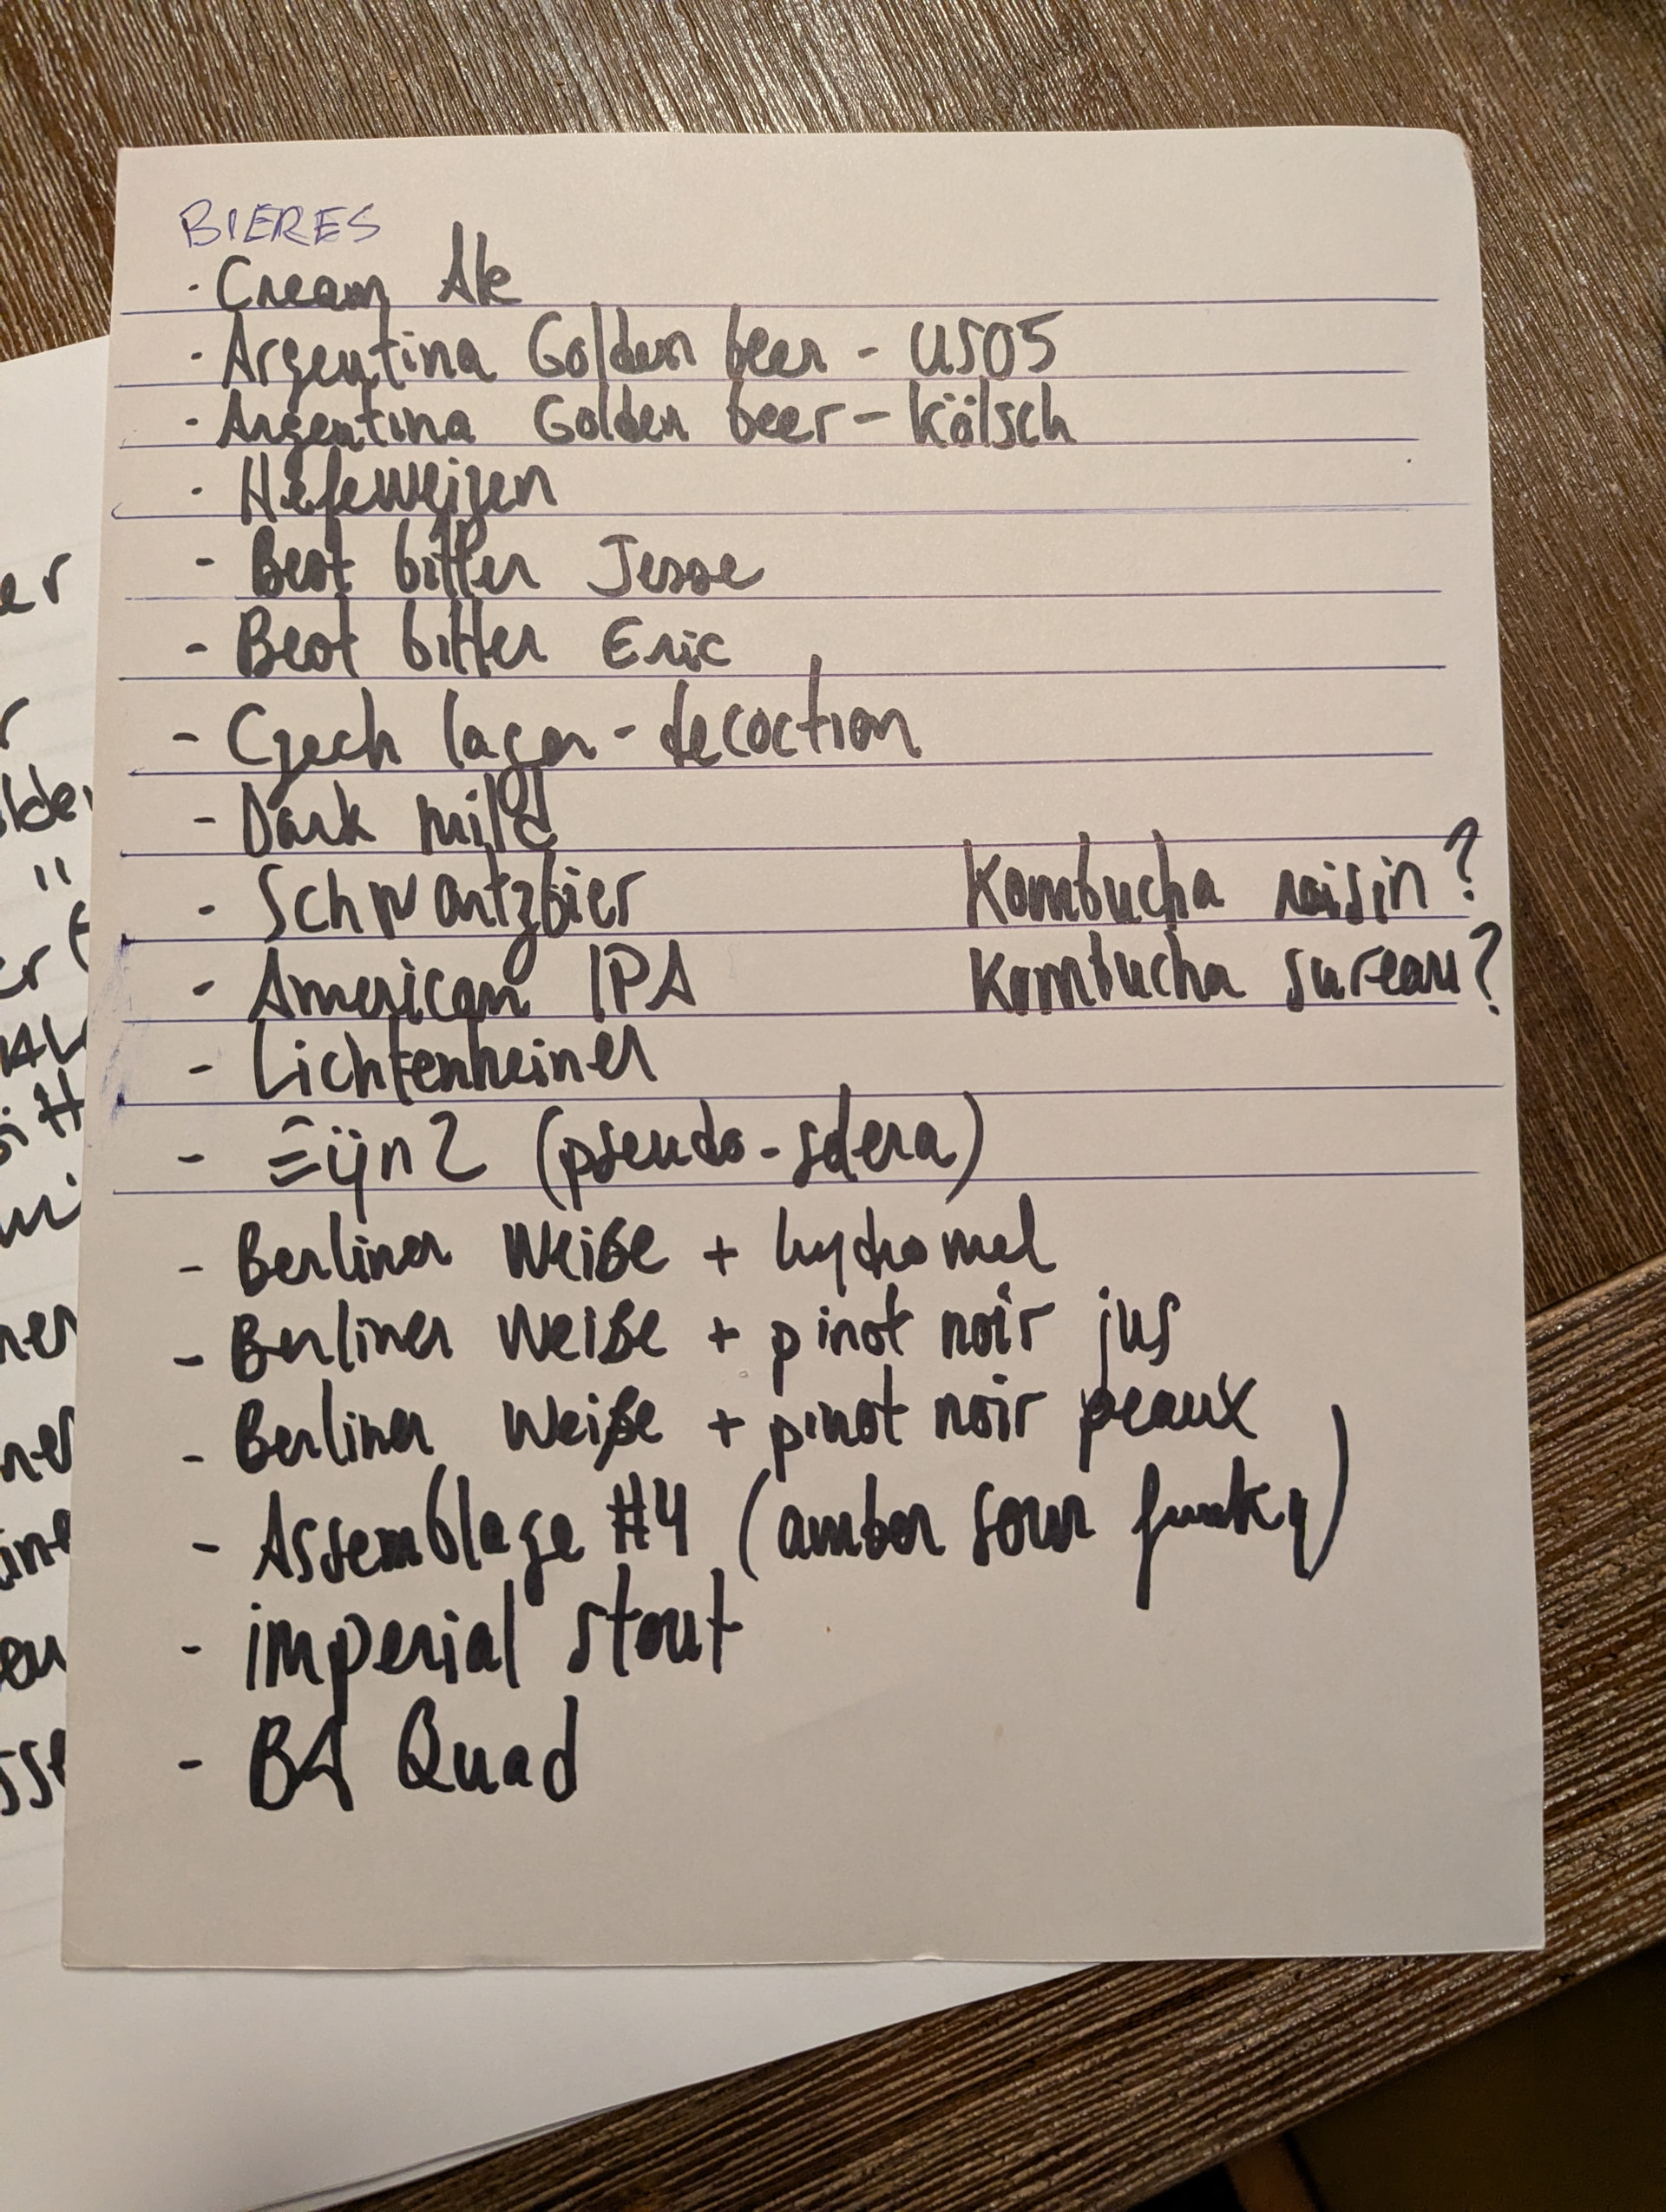 BIERES
· Cream Ale
· Argentina Golden beer - US05
· Argentina Golden beer - Kölsch
· Hefeweizen
- Best bitter Jesse
- Best bitter Eric
- Czech lager - decoction
- Dark mild
- Schwartzbier
Kombucha raisin ?
- American IPA
Kombucha sureau ?
- Lichtenheiner
- (pseudo-sdera)
- Berliner Weiße + hydromel
- Berliner Weiße + pinot noir jus
- Berliner Weiße + pinot noir peaux
- Assemblage #4 (amber sour funky)
- imperial stout
- BA Quad